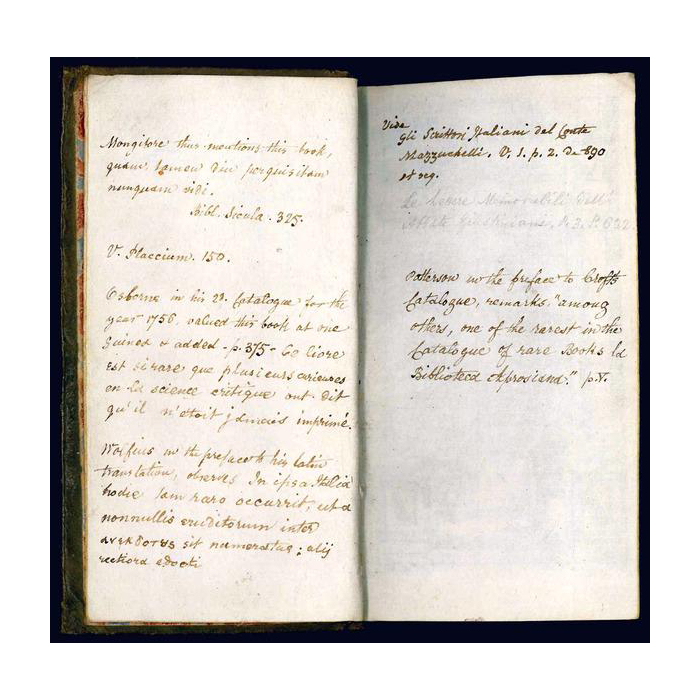 Mongitore thus mentions this book,
quam tamen diu perquisitam
nunquam vidi.
Bibl. Sicula. 325.
V. Placcium. 150.
Osborne in his 2d. Catalogue for the
year 1756, valued this book at one
Guinea & added - p. 375 - Ce livre
est si rare que plusieurs curieuses
en la science critique ont dit
qu'il n'etoit jamais imprimé.
Wolfius in the preface to his latin
translation, observes In ipsa Italia
hodie tam raro occurrit, ut a
nonnullis eruditorum inter
ανεκδοτυς sit numeratus; alij
rectiora edocti
Vide
gli Scrittori Italiani del Conte
Mazzuchelli. V. 1. p. 2. de 890
et seq.
Le Lettere Memorabili dell'
Abbate Giustiniani, P. 3. N. 632.
Patterson in the preface to Crofts
Catalogue, remarks, "among
others, one of the rarest in the
Catalogue of rare Books la
Biblioteca Aprosiana." p. V.